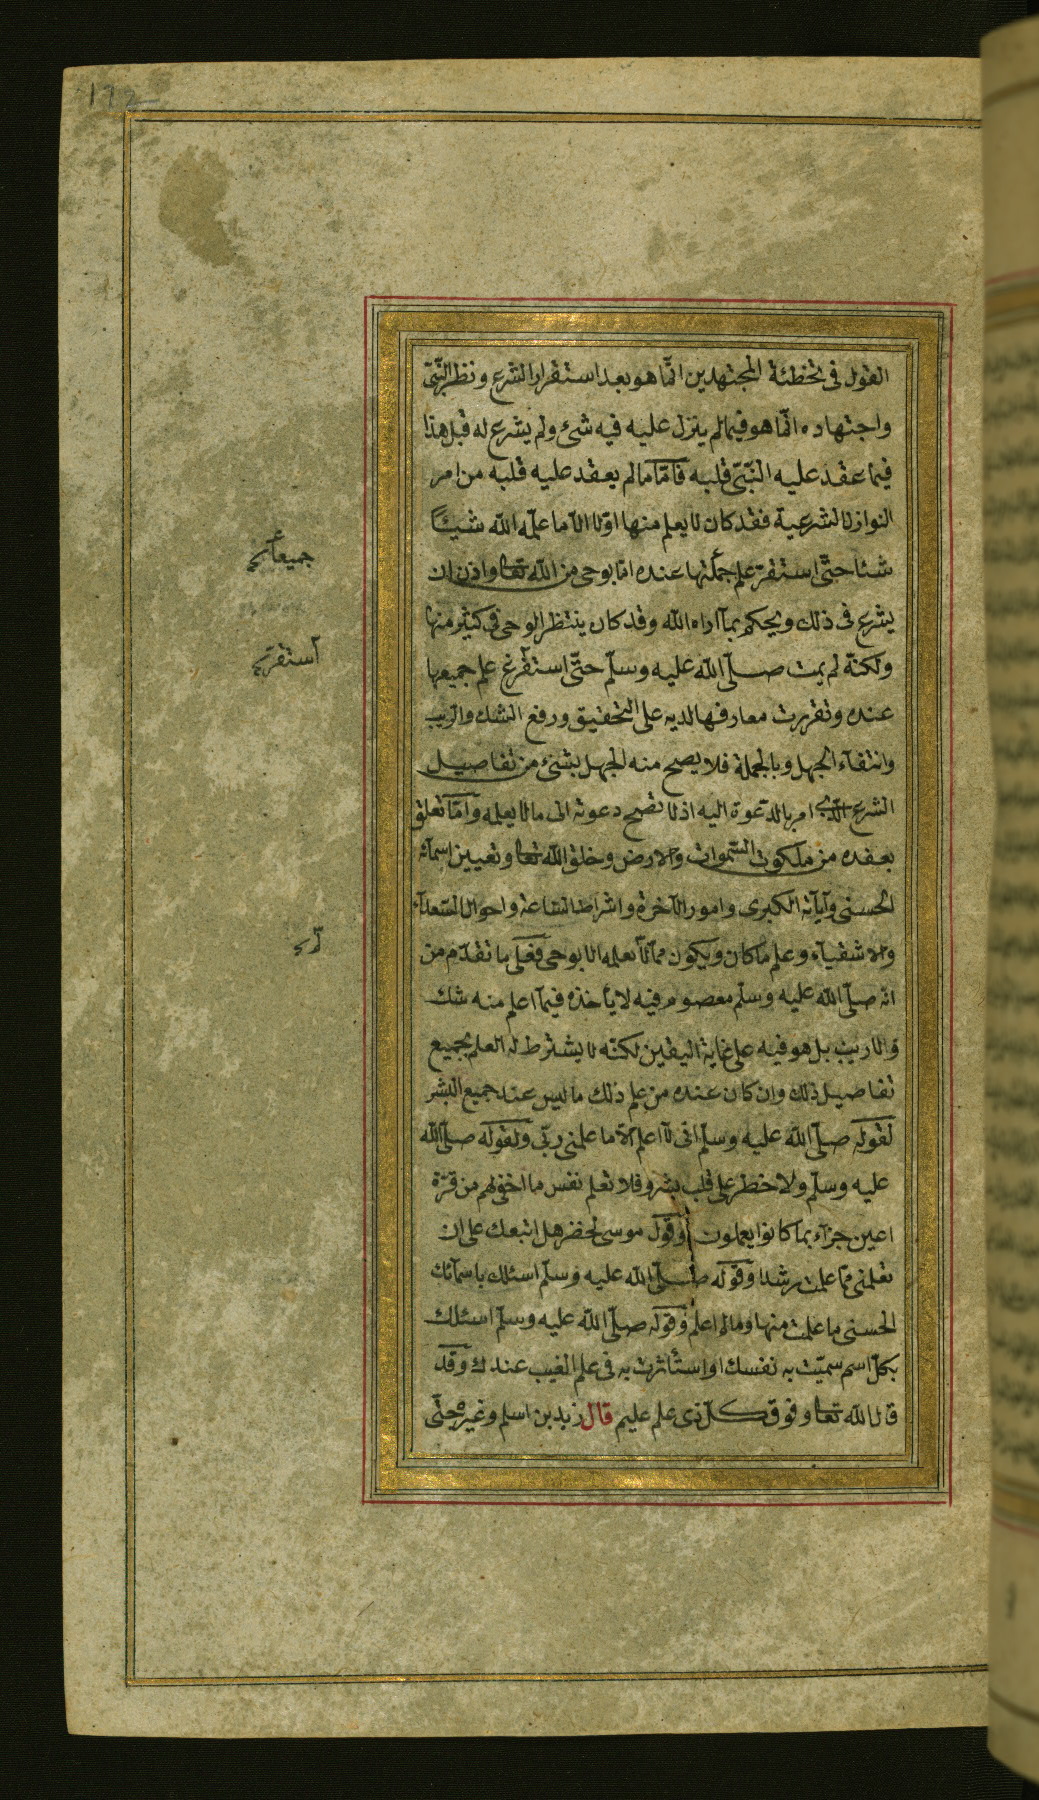 172
القول فى تخطئة المجتهدين انّما هو بعد استقرار الشرع ونظر النّبىّ
واجتهاده انّما هو فيما لم ينزل عليه فيه شئ ولم يشرع له قبل هذا
فيما عقد عليه النّبىّ قلبه فامّا ما لم يعقد عليه قلبه من امر
النوازل الشرعية فقد كان لا يعلم منها اوّلا الّا ما علّمه اللّه شيئًا
شئا حتّى استقرّ علم جملتها عنده امّا بوحى من اللّه تعا واذن ان
يشرع فى ذلك ويحكم بمآ اراه اللّه وقد كان ينتظر الوحى فى كثير منها
ولكنّه لم يمت صلّى اللّه عليه وسلّم حتّى استفرغ علم جميعها
عنده وتقررت معارفها لديه على التحقيق ورفع الشك والريب
وانتفآء الجهل وبالجملة فلا يصح منه الجهل بشئ من تفاصيل
الشرع الّذى امر بالدعوة اليه اذ لا تصحّ دعوته الى ما لا يعلمه وامّا تعلق
بعقده من ملكوت السّموات والارض وخلق اللّه تعا وتعيين اسمآئه
الحسنى وآياته الكبرى وامور الآخرة واشراط الساعة واحوال السّعدآء
والاشقيآء وعلم ما كان ويكون ممّا لا يعلمه الا بوحى فعلى ما تقدّم من
انّه صلّى اللّه عليه وسلّم معصوم فيه لا يأخذه فيمآ اعلم منه شك
ولا ريب بل هو فيه على غاية اليقين لكنّه لا يشترط له العلم بجميع
تفاصيل ذلك وان كان عنده من علم ذلك ما ليس عند جميع البشر
لقوله صلّى اللّه عليه وسلّم انى لآ اعلم الّا ما علمنى ربّى ولقوله صلّى اللّه
عليه وسلّم ولا خطر على قلب بشر و فلا تعلم نفس ما اخفى لهم من قرّة
اعين جزآء بما كانوا يعملون وقول موسى لخضر هل اتبعك على ان
تعلمنى ممّا علمت رشدا وقوله صلّى اللّه عليه وسلّم اسئلك باسمآئك
الحسنى ما علمت منها وما لم اعلم وقوله صلّى اللّه عليه وسلّم اسئلك
بكلّ اسم سميّت به نفسك او استأثرت به فى علم الغيب عندك وقد
قال اللّه تعا وفوق كلّ ذى علم عليم قال زيد بن اسلم وغيره حتّى
جميعا
استقرّ